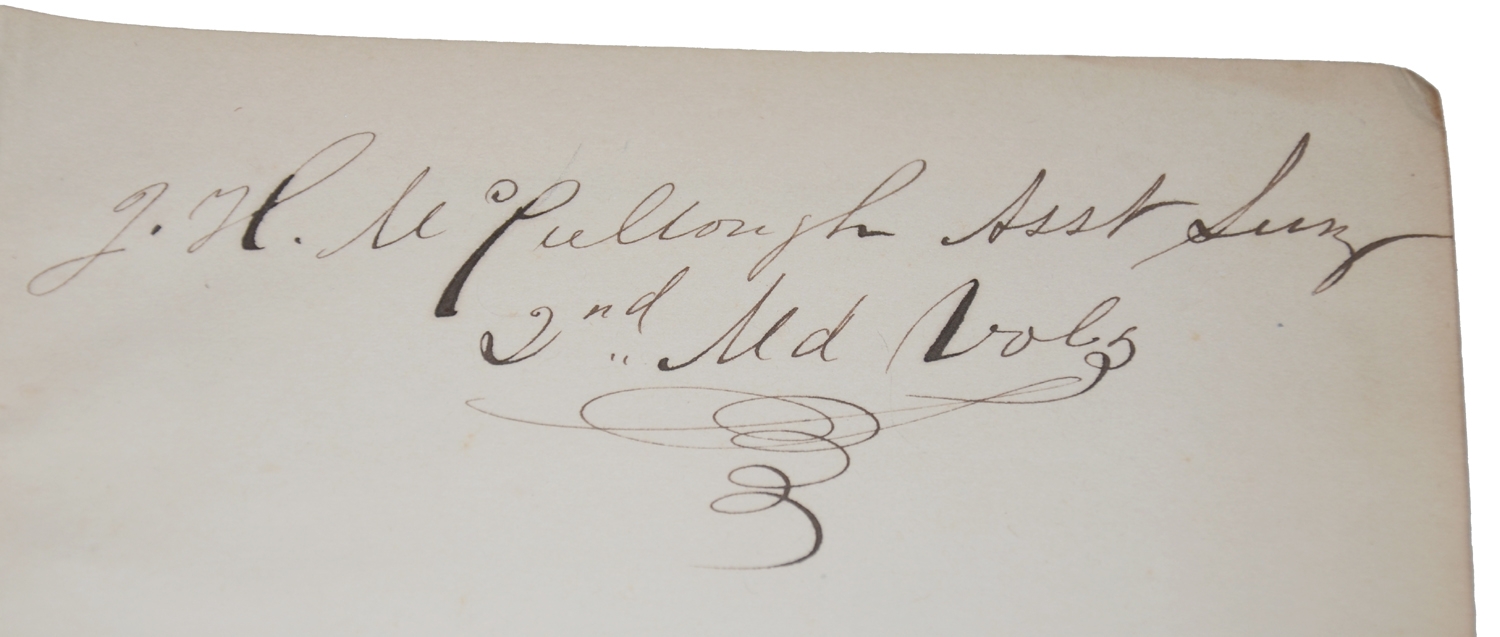 J. H. McCullough Asst Surg
2nd Md Vols